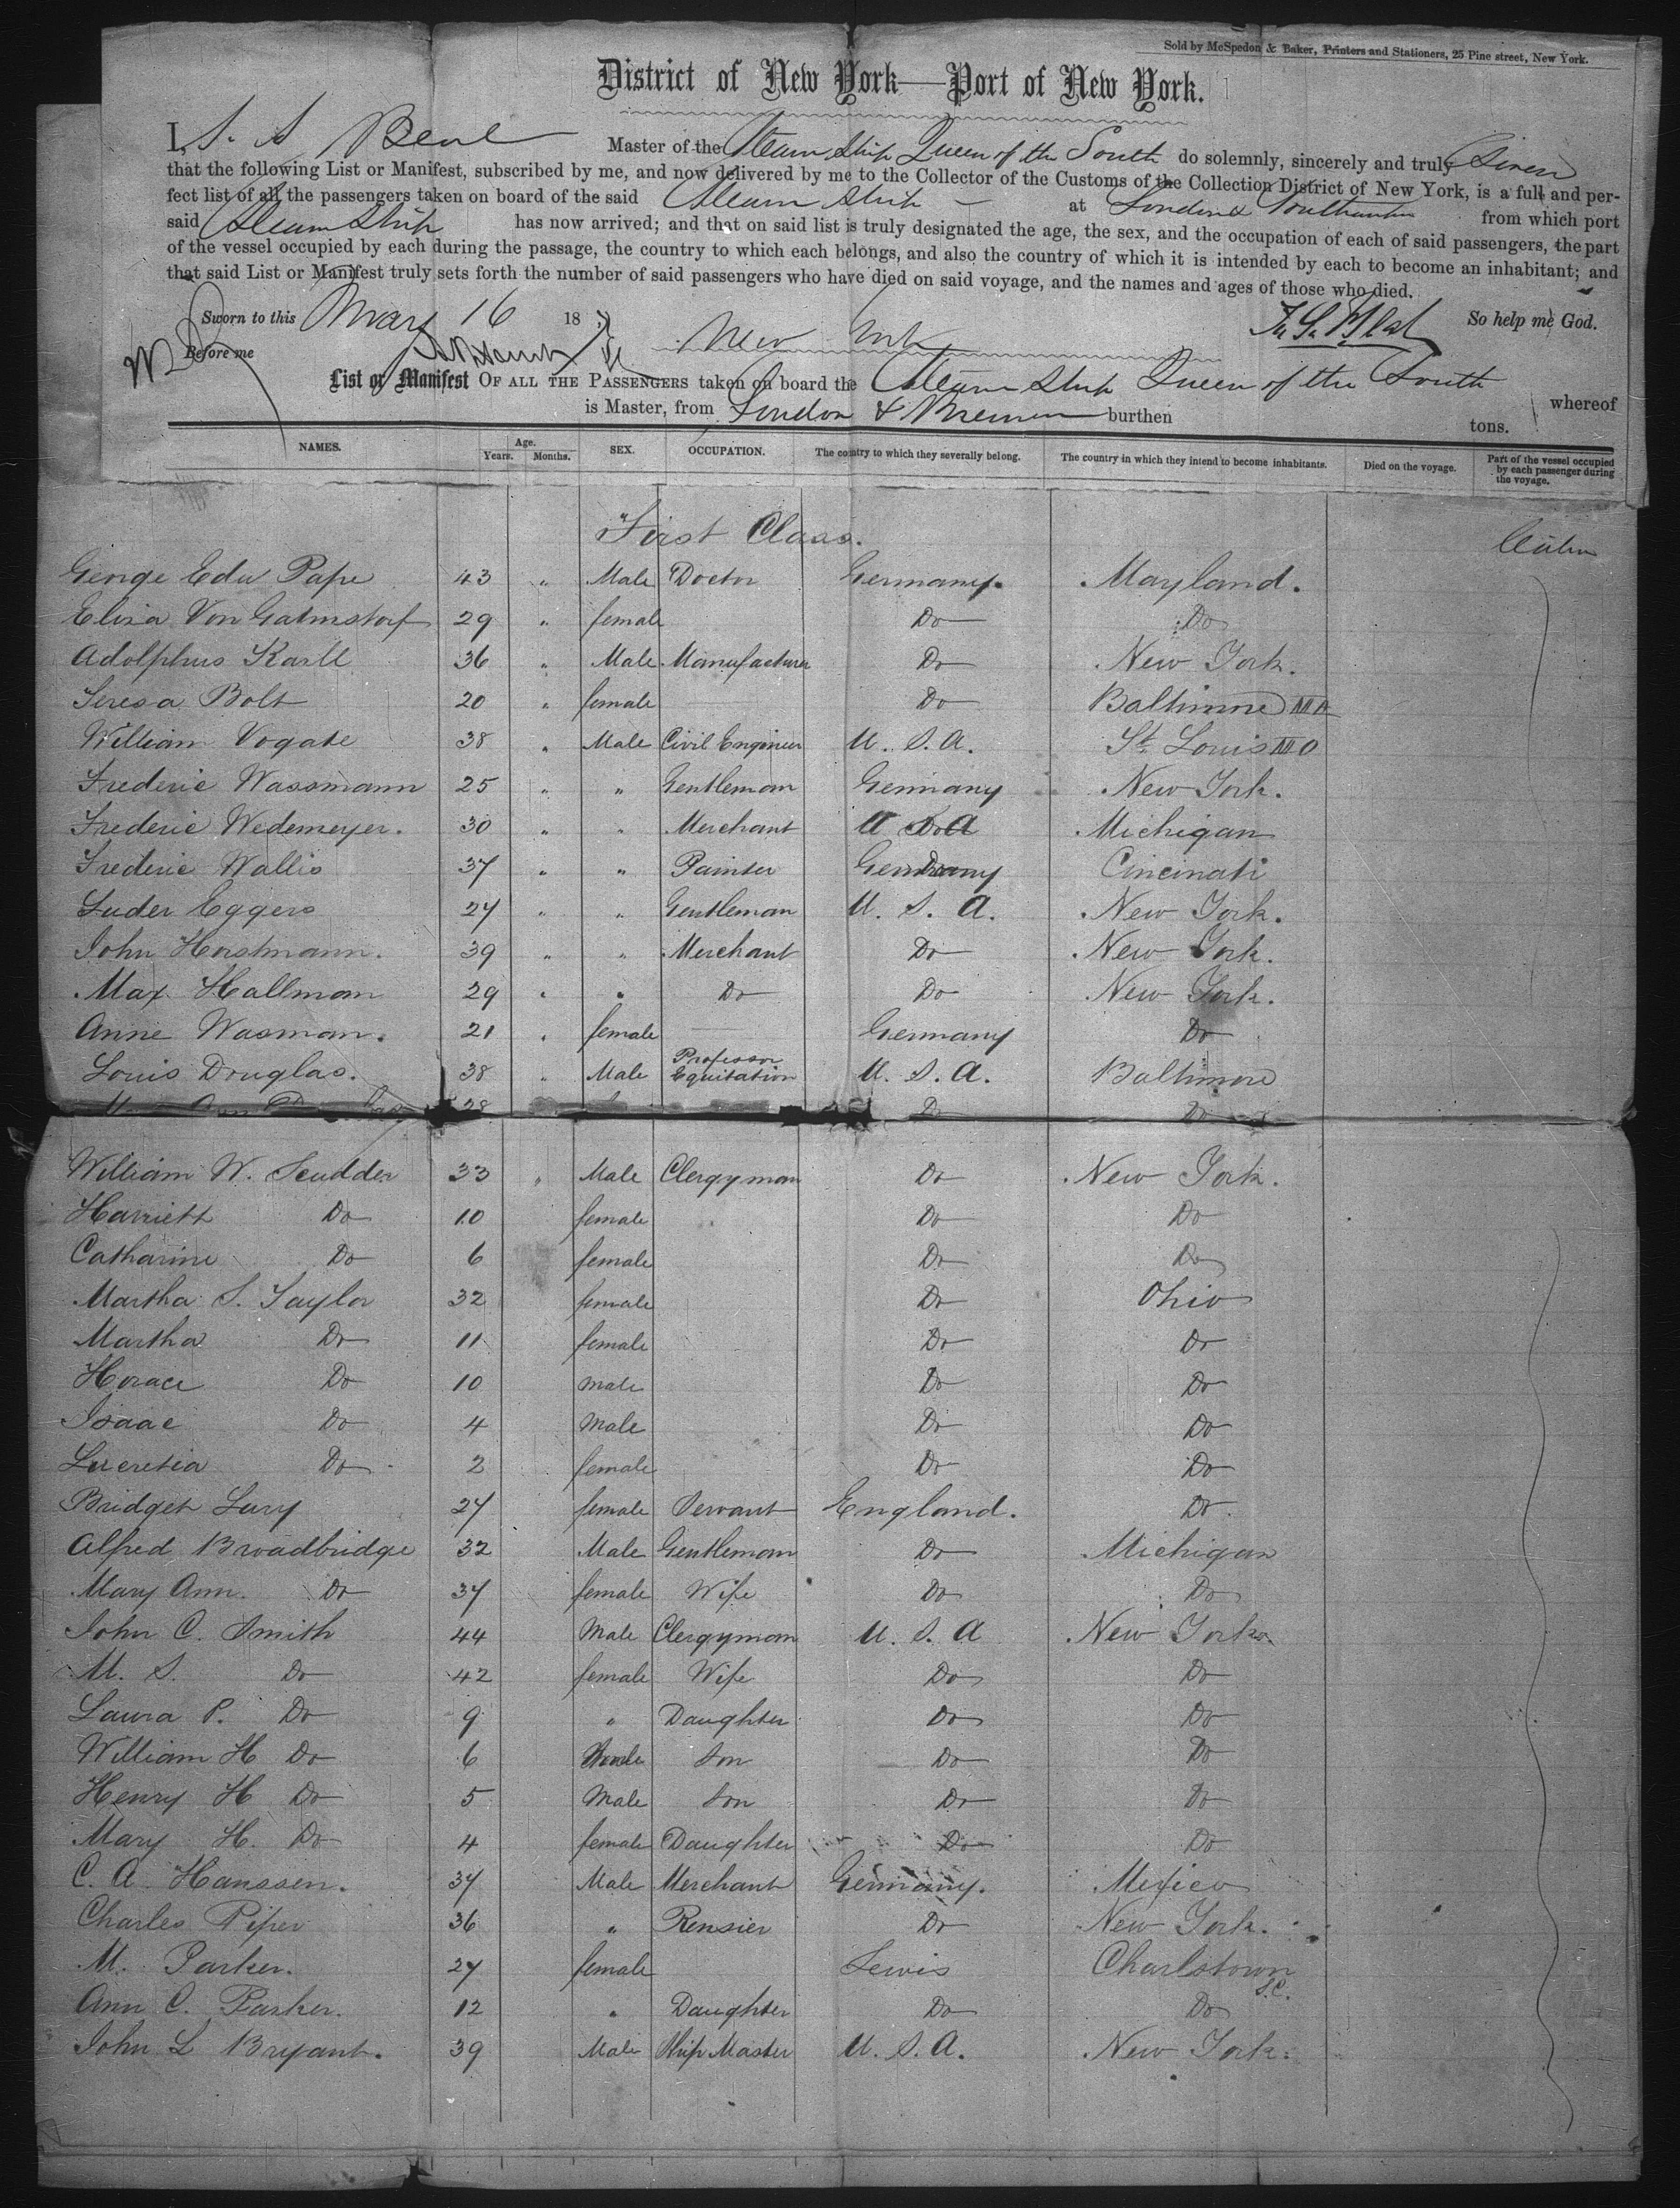 Sold by McSpedon & Baker, Printers and Stationers, 25 Pine street, New York.
District of New York—Port of New York.
I, Master of the Steam Ship Queen of the South do solemnly, sincerely and truly Swear
that the following List or Manifest, subscribed by me, and now delivered by me to the Collector of the Customs of the Collection District of New York, is a full and per-
fect list of all the passengers taken on board of the said Steam Ship at London & Southampton from which port
said Steam Ship has now arrived; and that on said list is truly designated the age, the sex, and the occupation of each of said passengers, the part
of the vessel occupied by each during the passage, the country to which each belongs, and also the country of which it is intended by each to become an inhabitant; and
that said List or Manifest truly sets forth the number of said passengers who have died on said voyage, and the names and ages of those who died.
Sworn to this May 16 18 So help me God.
Before me New York
List or Manifest OF ALL THE PASSENGERS taken on board the Steam Ship Queen of the South whereof
is Master, from London & Bremen burthen tons.
NAMES. Age. Years. Months. SEX. OCCUPATION. The country to which they severally belong. The country in which they intend to become inhabitants. Died on the voyage. Part of the vessel occupied by each passenger during the voyage.
First Class.
George Edw Pape 43 " Male Doctor Germany. Mayland.
Eliza Von Gatmstorf 29 " female Do Do
Adolphus Karll 36 " Male Manufacturer Do New York.
Teresa Bolt 20 " female Do Baltimore MD
William Vogate 38 " Male Civil Engineer U. S. A. St Louis MO
Frederic Wassmann 25 " " Gentleman Germany New York.
Frederic Wedemeyer. 30 " " Merchant U S A Michigan
Frederic Wallis 37 " " Painter Germany Cincinati
Luder Eggers 27 " " Gentleman U. S. A. New York.
John Horstmann. 39 " " Merchant Do New York.
Max Hallman 29 " " Do Do New York.
Anne Wasman. 21 " female Germany Do
Louis Douglas. 38 " Male Professor Equitation U. S. A. Baltimore
28 Do Do
William W. Scudder 33 " Male Clergyman Do New York.
Harriett Do 10 female Do Do
Catharine Do 6 female Do Do
Martha S. Taylor 32 female Do Ohio
Martha Do 11 female Do Do
Horace Do 10 male Do Do
Isaac Do 4 Male Do Do
Lucretia Do 2 female Do Do
Bridget Lury 27 female Servant England. Do
Alfred Broadbridge 32 Male Gentleman Do Michigan
Mary Ann. Do 37 female Wife Do Do
John C. Smith 44 Male Clergyman U. S. A New York.
M. S. Do 42 female Wife Do Do
Laura P. Do 9 " Daughter Do Do
William H Do 6 Male Son Do Do
Henry H Do 5 Male Son Do Do
Mary H. Do 4 female Daughter Do Do
C. A. Hanssen. 37 Male Merchant Germany. Mexico
Charles Piper 36 " Rensier Do New York.
M. Parker. 27 female Charlstown S.C.
Ann C. Parker. 12 " Daughter Do Do
John L Bryant. 39 Male Ship Master U. S. A. New York.